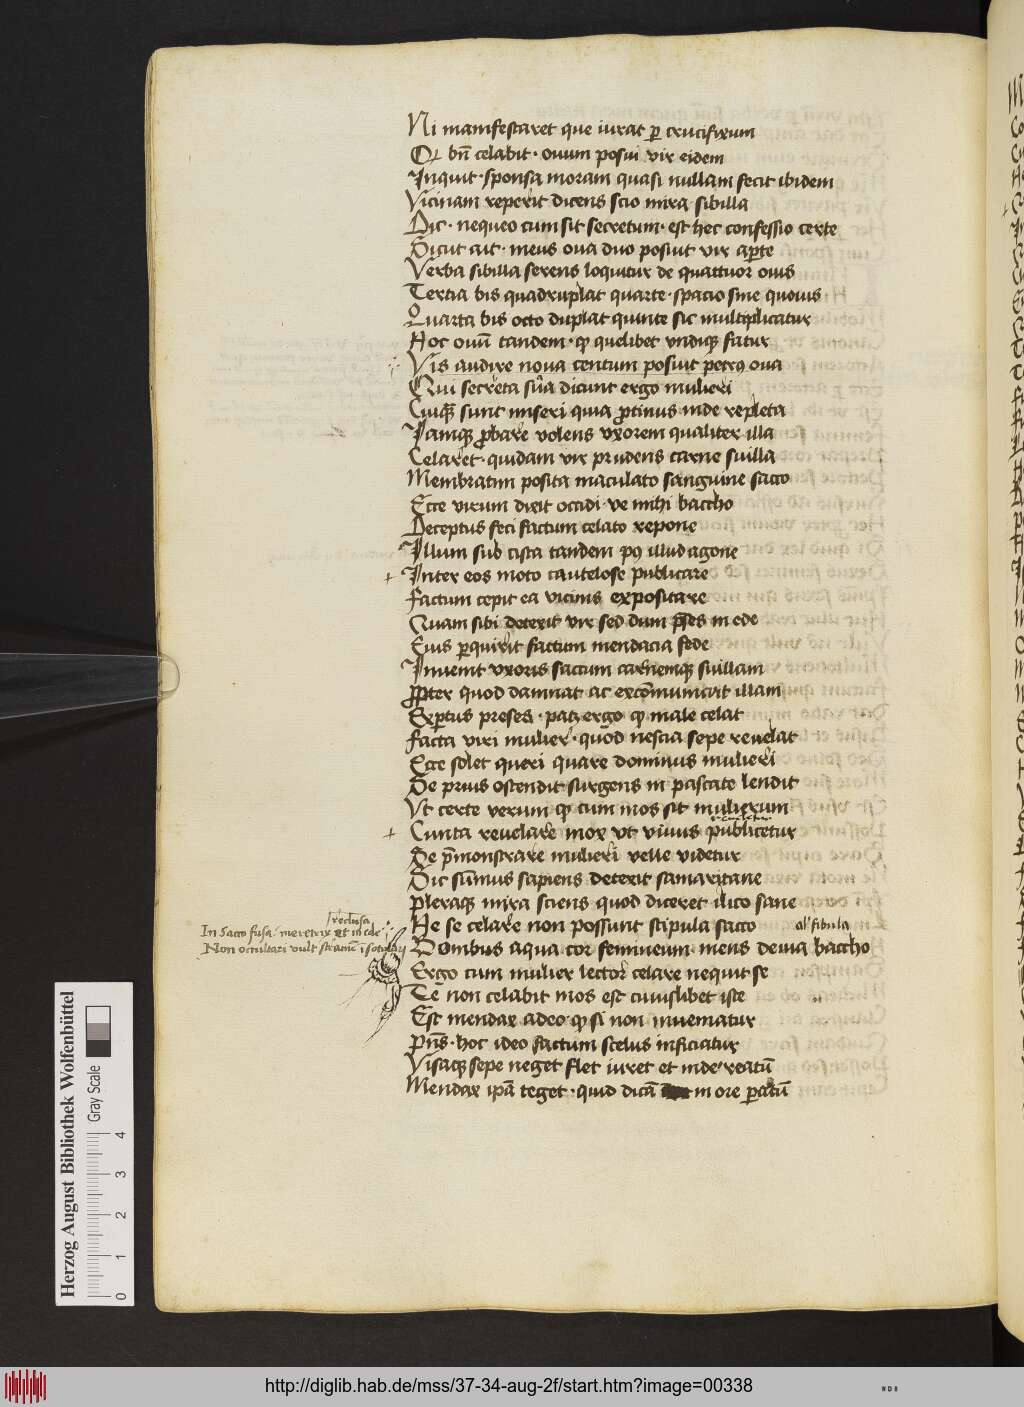 Ni manifestaret que iurat p crucifixum
Or bn̄ celabit · ouum posui vir eidem
Inquit · sponsa moram quasi nullam fecit ibidem
Vicinam reperit dicens scio mira sibilla
Dic · nequeo cum sit secretum · est hec confessio certe
Sicut ait · meus oua duo posiut vir apte
Verba sibilla serens loquitur de quattuor ouis
Tertia bis quadruplat quarte · spacio sine quouis
Quarta bis octo duplat quinte sic multiplicatur
Hoc ouū tandem · qͥ quelibet vndiqꝫ fatur
Vis audire noua centum posuit petrꝰ oua
Qui secreta sua dicunt ergo mulieri
Cuiqꝫ sunt miseri quia ꝓtinus inde repleta
Iamqꝫ ꝓbare volens vxorem qualiter illa
Celaret · quidam vir prudens carne suilla
Membratim posita maculato sanguine sacco
Ecce virum dixit occidi · ve mihi baccho
Deceptus feci factum celato repone
Illum sub cista tandem pꝰ illud agone
+ Inter eos moto cautelose publicare
Factum cepit ea vicinis expositare
Quam sibi dexerit vir sed dum pses in ede
Eius pquirit factum mendacia fede
Inuenit vxoris saccum carnemqꝫ suillam
ꝓpter quod damnat ac excōmunicat illam
Exptus preses · patꝫ ergo qͥ male celat
Facta viri mulier · quod nescia sepe reuelat
Ecce solet queri quare dominus mulieri
Se prius ostendit surgens in pascate lendit
Vt certe verum qͥ cum mos sit mulierum
+ Cuncta reuelare mox vt viuus publicetur
Se p̄monstrare mulieri velle videtur
Sic sūmus sapiens dexerit samaritane
Pleraqꝫ mira sciens quod diceret ilico sane
Ne se celare non possunt stipula sacco al' fibula
reclusa
In Sacco fusa · meretrix et in ede
Non occultari vult
Bombus aqua cor femineum · mens deuia baccho
Ergo cum mulier lector celare nequit se
Te non celabit mos est cuiuslibet iste
Est mendax adeo · qͥ si non inueniatur
Pn̄s · hoc ideo factum scelus inficiatur
Visaqꝫ sepe neget flet iuret et inde reatū
Mendax ipā teget · quid dicā in ore pcatū
Herzog August Bibliothek Wolfenbüttel
Gray Scale
0 1 2 3 4
http://diglib.hab.de/mss/37-34-aug-2f/start.htm?image=00338